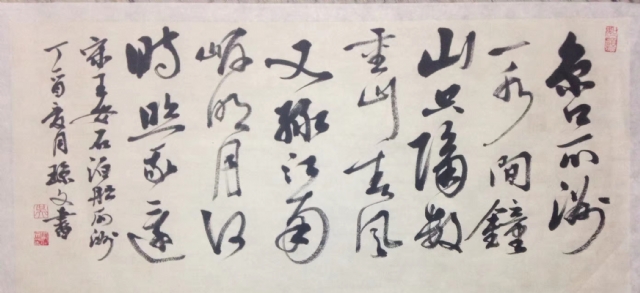 京口瓜洲
一水間鐘
山只隔數
重山春風
又綠江南
岸明月何
時照我還
宋王安石泊船瓜洲
丁酉夏月文書